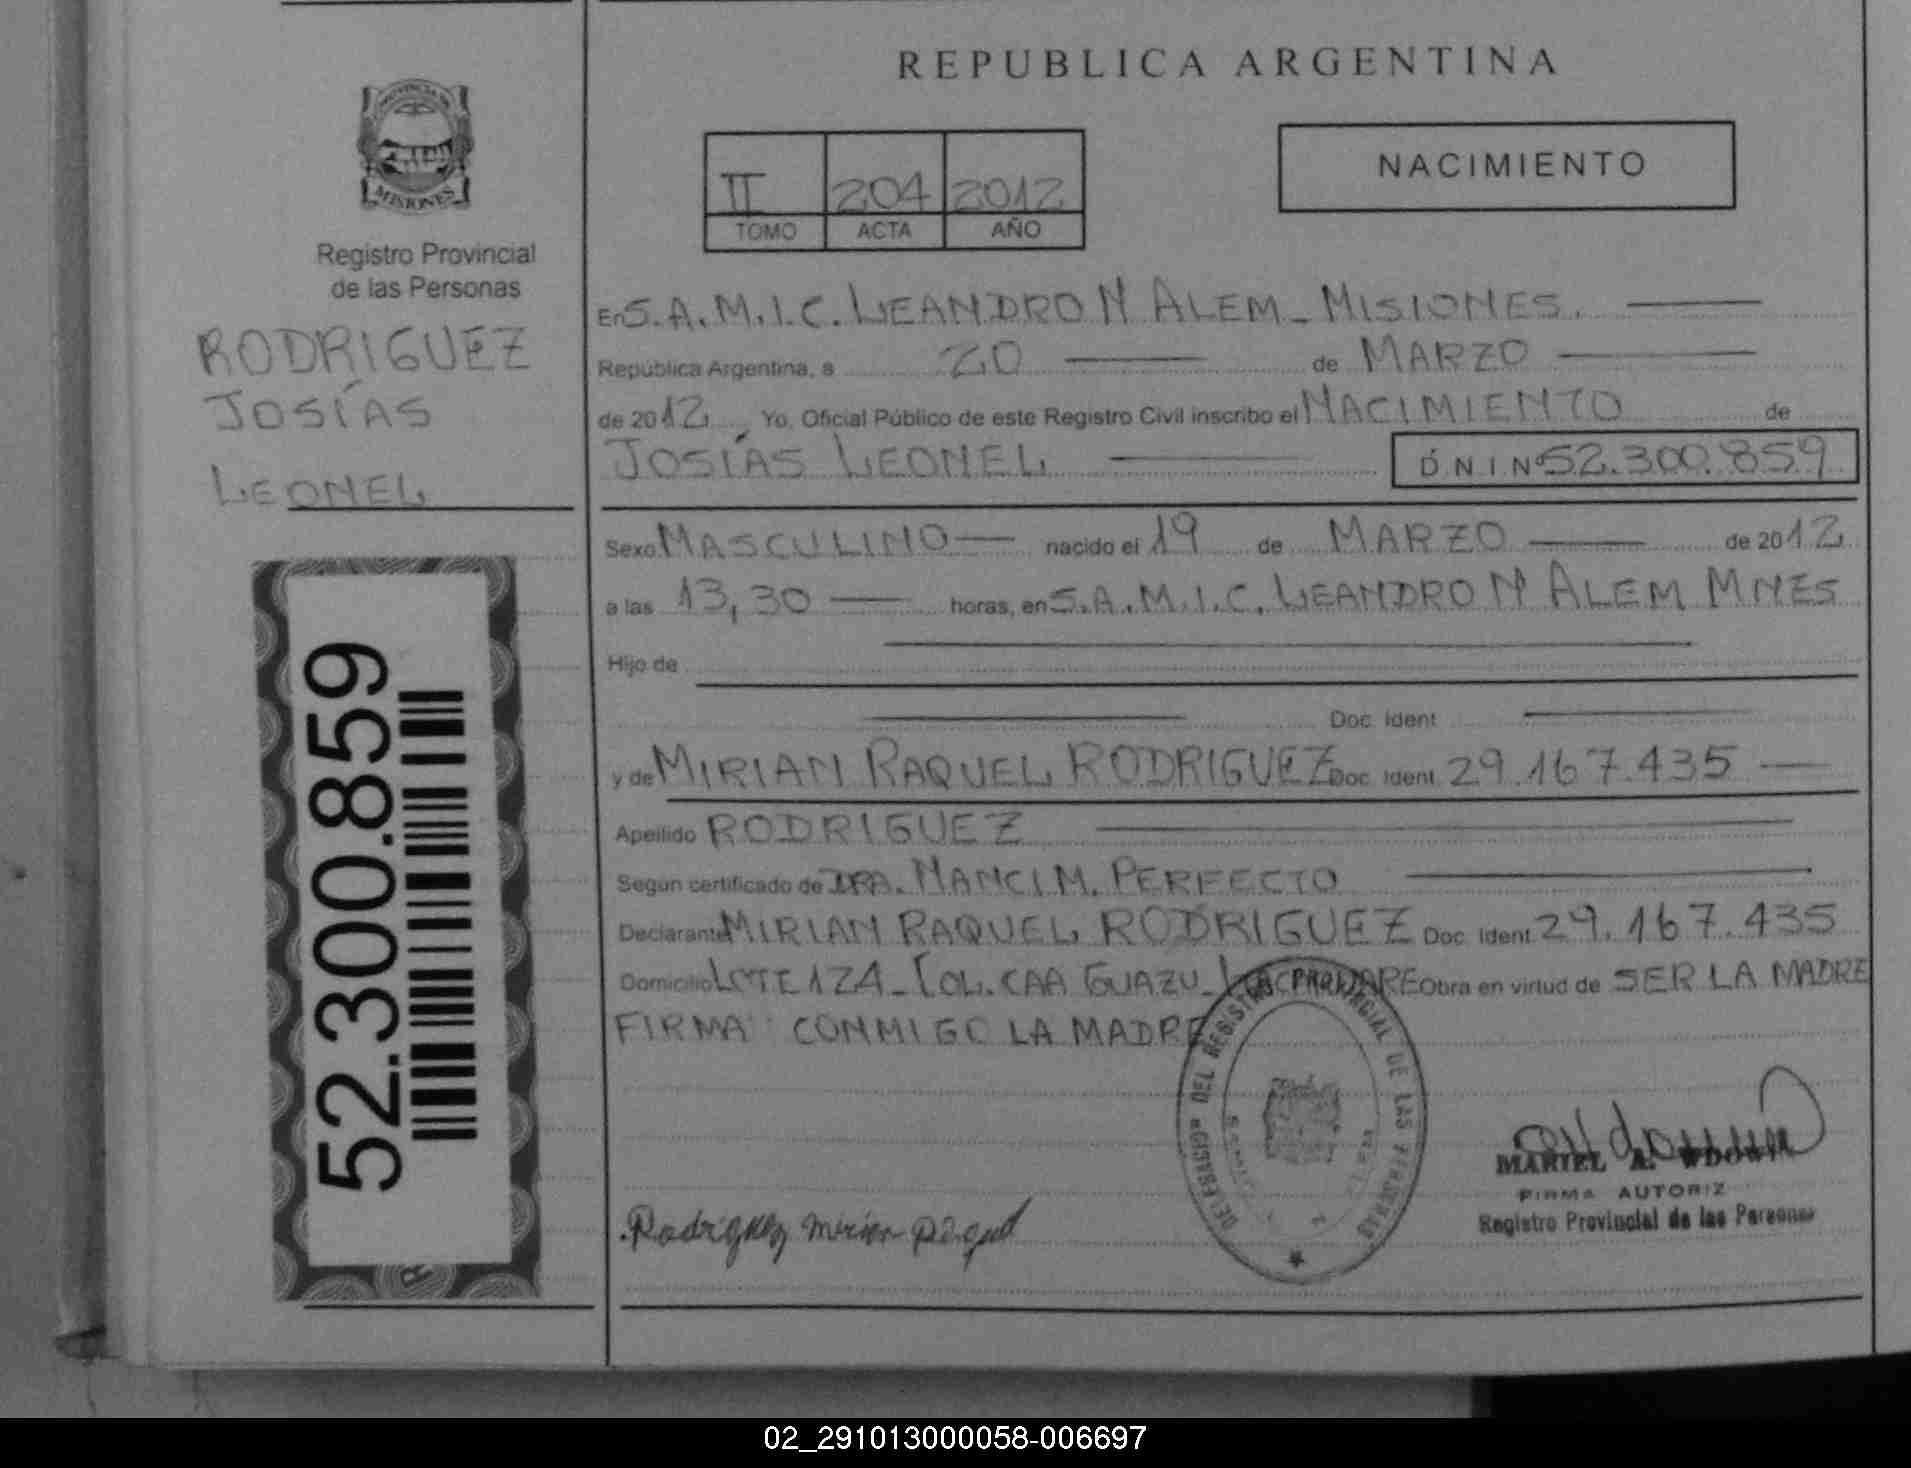 REPUBLICA ARGENTINA
PROVINCIA DE
MISIONES
Registro Provincial
de las Personas
RODRIGUEZ
JOSÍAS
LEONEL
52.300.859
II 204 2012
TOMO ACTA AÑO
NACIMIENTO
En S.A.M.I.C. LEANDRO N ALEM - MISIONES.
República Argentina, a 20 de MARZO
de 2012 Yo, Oficial Público de este Registro Civil inscribo el NACIMIENTO de
JOSÍAS LEONEL D N I Nº 52.300.859
Sexo MASCULINO nacido el 19 de MARZO de 2012
a las 13,30 horas, en S.A.M.I.C. LEANDRO N ALEM MNES
Hijo de
Doc. Ident
y de MIRIAN RAQUEL RODRIGUEZ Doc. Ident. 29.167.435
Apellido RODRIGUEZ
Según certificado de DRA. NANCI M. PERFECTO
Declarante MIRIAN RAQUEL RODRIGUEZ Doc. Ident. 29.167.435
Domicilio LOTE 124 - COL. CAA GUAZU - Obra en virtud de SER LA MADRE
FIRMA CONMIGO LA MADRE
DEL REGISTRO PROVINCIAL DE LAS PERSONAS
Rodriguez Mirian Raquel
MARIEL A.
FIRMA AUTORIZ
Registro Provincial de las Personas
02_291013000058-006697